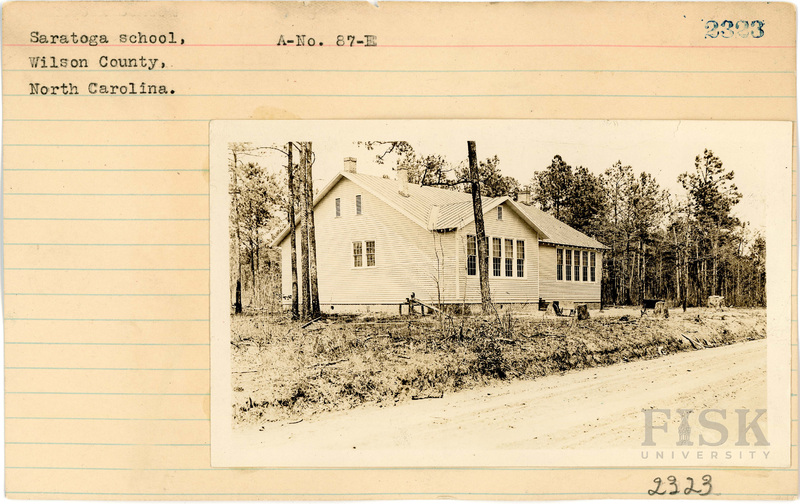 Saratoga school, A-No. 87-E 2323
Wilson County,
North Carolina.
FISK
UNIVERSITY
2323